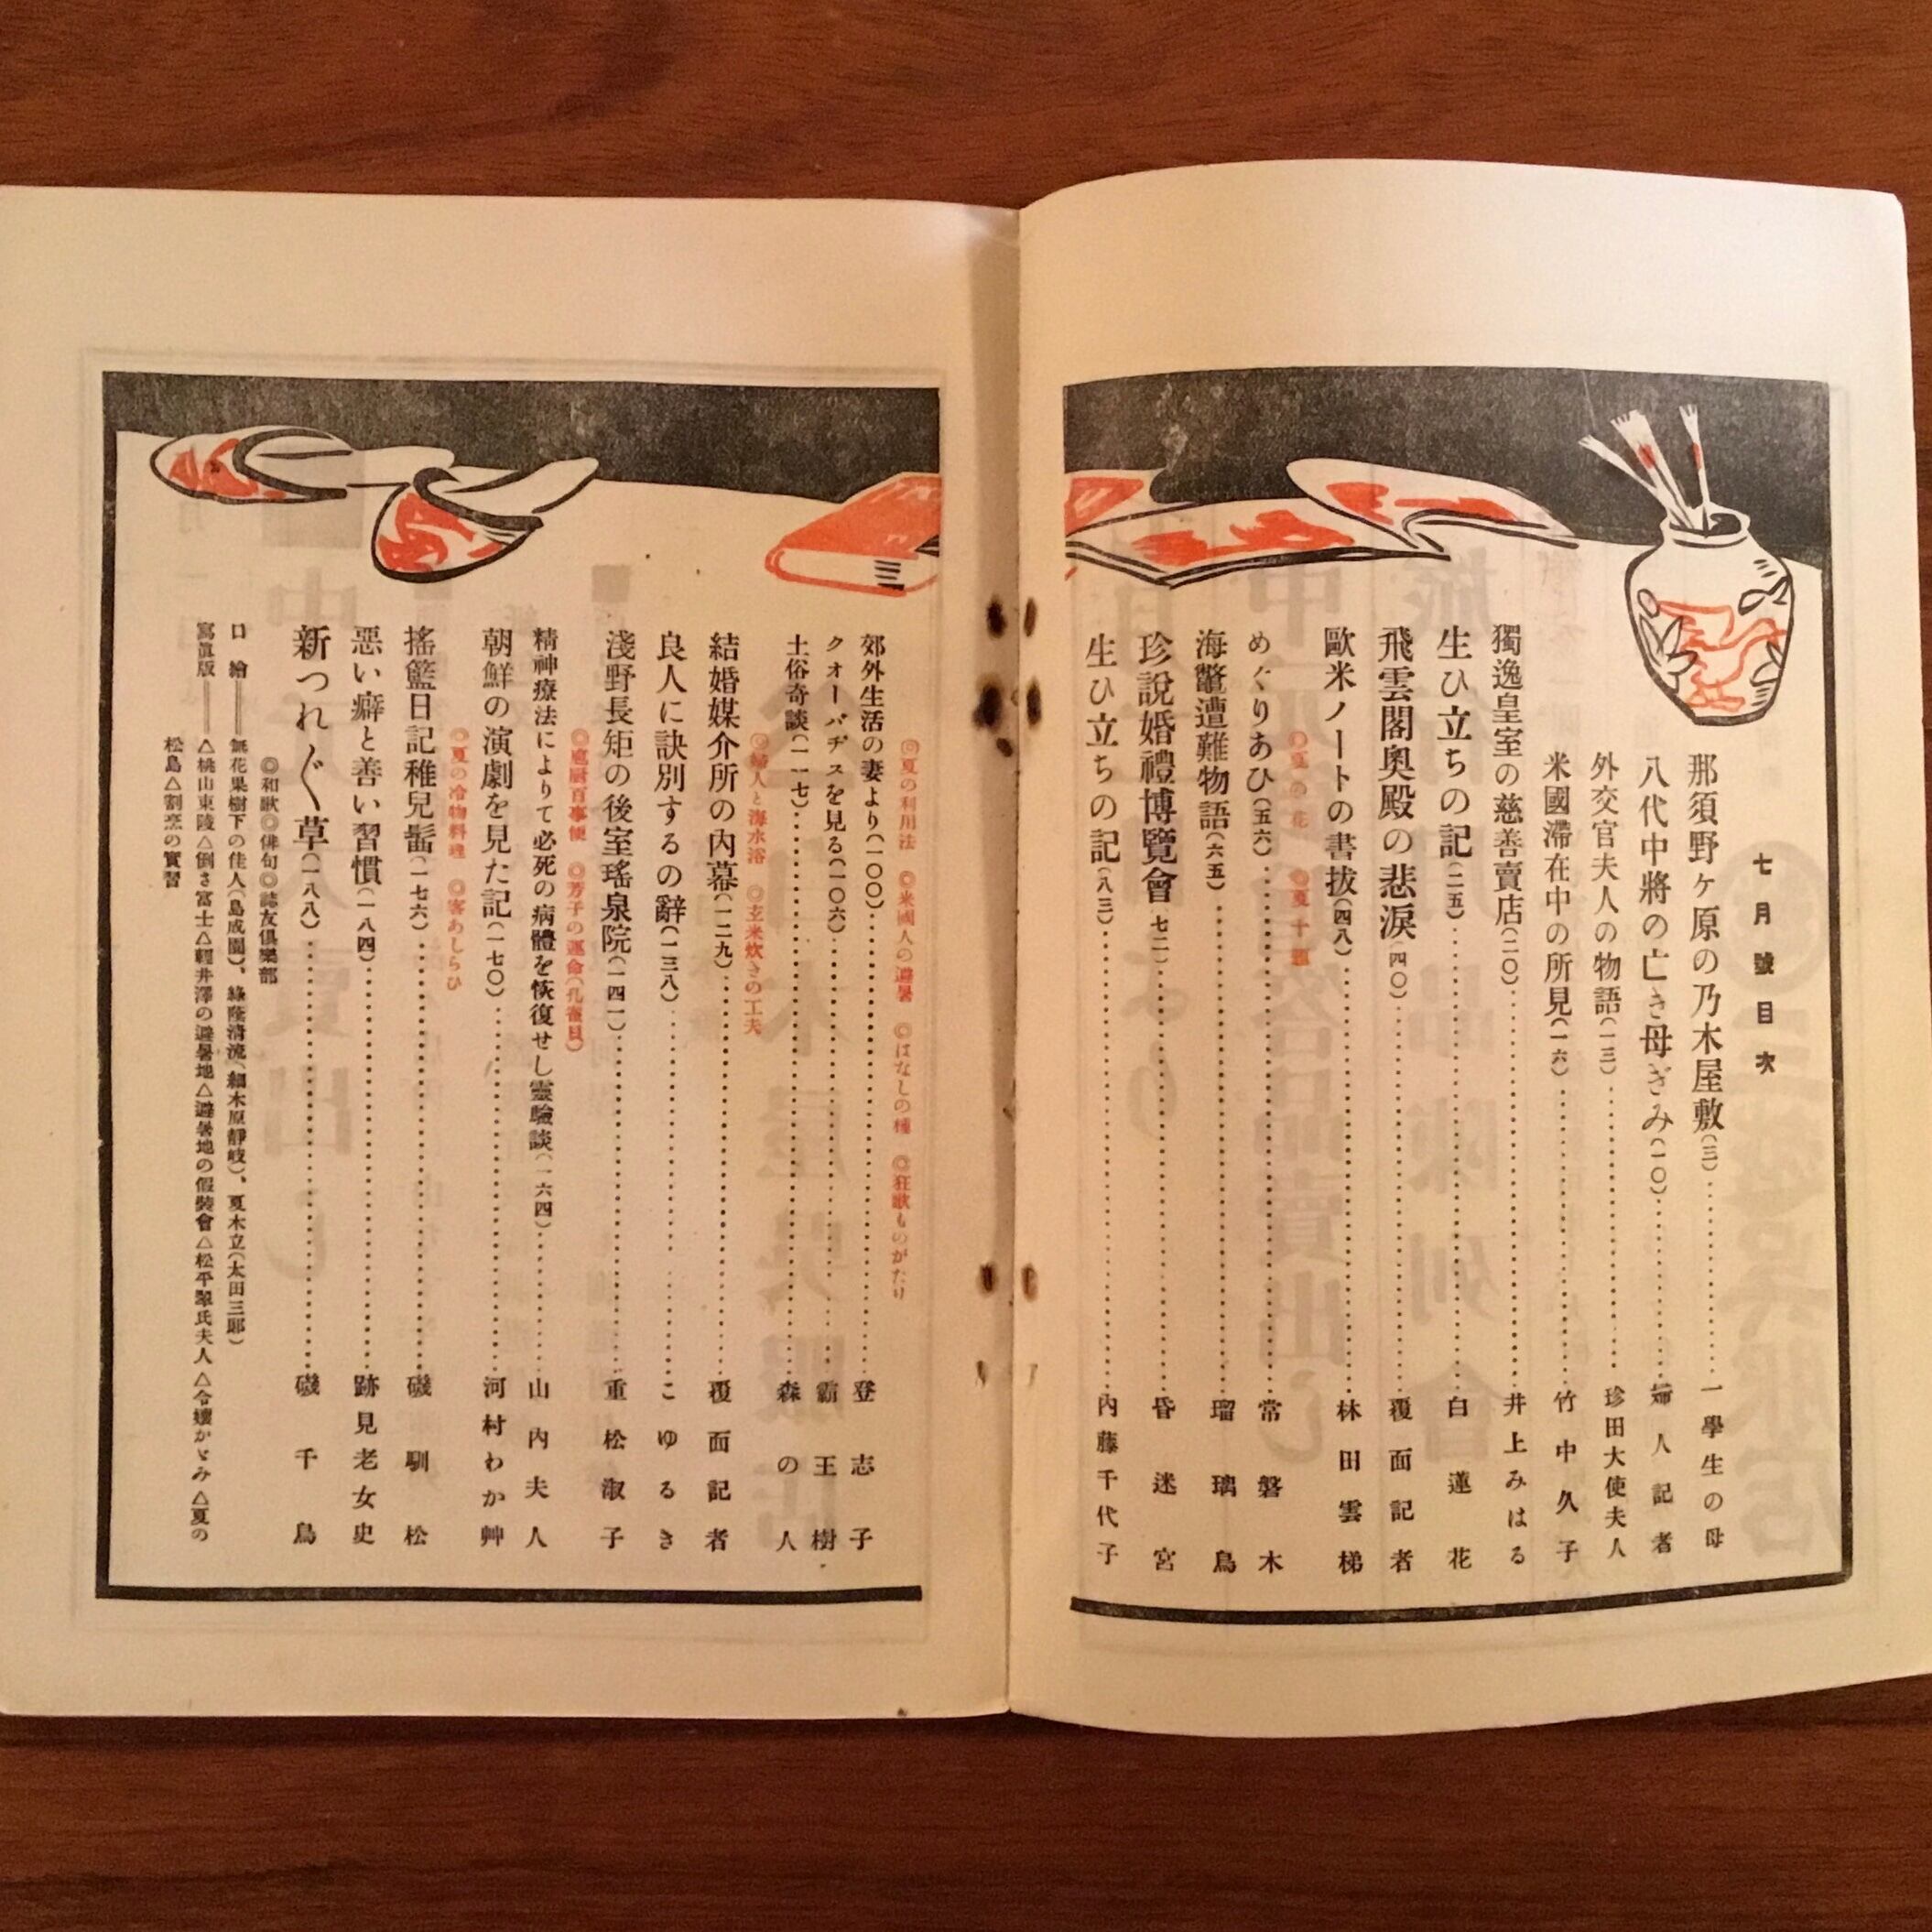 七月號目次
那須野ヶ原の乃木屋敷(三)……一學生の母
八代中將の亡き母ぎみ(一〇)……婦人記者
外交官夫人の物語(一三)……珍田大使夫人
米國滯在中の所見(一六)……竹中久子
獨逸皇室の慈善賣店(二〇)……井上みはる
生ひ立ちの記(二五)……白蓮花
飛雲閣奧殿の悲淚(四〇)……覆面記者
歐米ノートの書拔(四八)……林田雲梯
◎夏の花 ◎夏十題
めぐりあひ(五六)……常磐木
海鼈遭難物語(六五)……瑠璃鳥
珍說婚禮博覽會(七二)……昏迷宮
生ひ立ちの記(八三)……內藤千代子
◎夏の利用法 ◎米國人の避暑 ◎はなしの種 ◎狂歌ものがたり
郊外生活の妻より(一〇〇)……登志子
クオーバヂスを見る(一〇六)……霸王樹
土俗奇談(一一七)……森の人
◎婦人と海水浴 ◎玄米炊きの工夫
結婚媒介所の內幕(一二九)……覆面記者
良人に訣別するの辭(一三八)……こゆるき
淺野長矩の後室瑤泉院(一四一)……重松淑子
◎庖廚百事便 ◎芳子の運命(孔雀貝)
精神療法によりて必死の病體を恢復せし靈驗談(一六四)……山內夫人
朝鮮の演劇を見た記(一七〇)……河村わか艸
◎夏の冷物料理 ◎客あしらひ
搖籃日記稚兒髷(一七六)……磯馴松
惡い癖と善い習慣(一八四)……跡見老女史
新つれ〴〵草(一八八)……磯千鳥
◎和歌◎俳句◎誌友俱樂部
口繪══無花果樹下の佳人(島成園)、綠蔭淸流(細木原靜岐)、夏木立(太田三郎)
寫眞版══△桃山東陵△倒さ富士△輕井澤の避暑地△避暑地の假裝會△松平翠氏夫人△令孃かゞみ△夏の
松島△割烹の實習